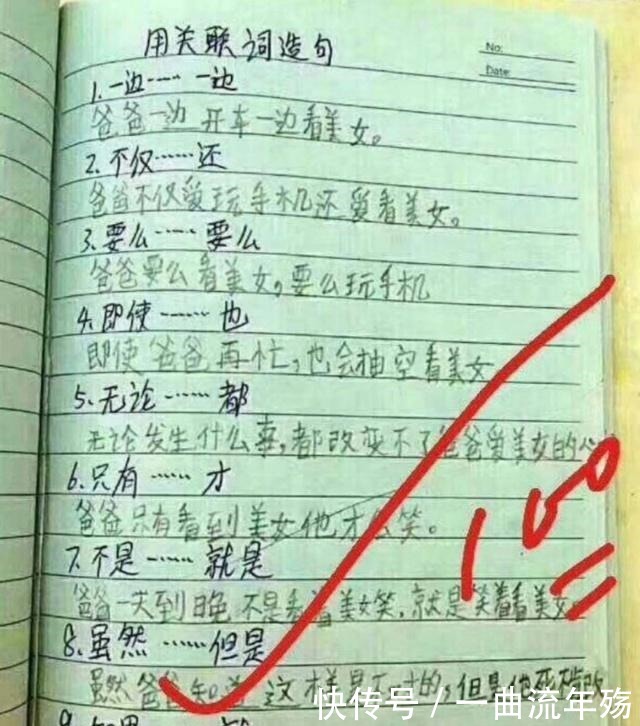 用关联词造句
No:
Date:
1.一边……一边
爸爸一边开车一边看美女。
2.不仅……还
爸爸不仅爱玩手机还爱看美女。
3.要么……要么
爸爸要么看美女,要么玩手机
4.即使……也
即使爸爸再忙,也会抽空看美女
5.无论……都
无论发生什么事,都改变不了爸爸爱美女的心
6.只有……才
爸爸只有看到美女他才会笑。
7.不是……就是
爸爸一天到晚不是看着美女笑,就是笑着看美女
8.虽然……但是
虽然爸爸知道这样是不对的,但是他死
100
快传号/一曲流年殇